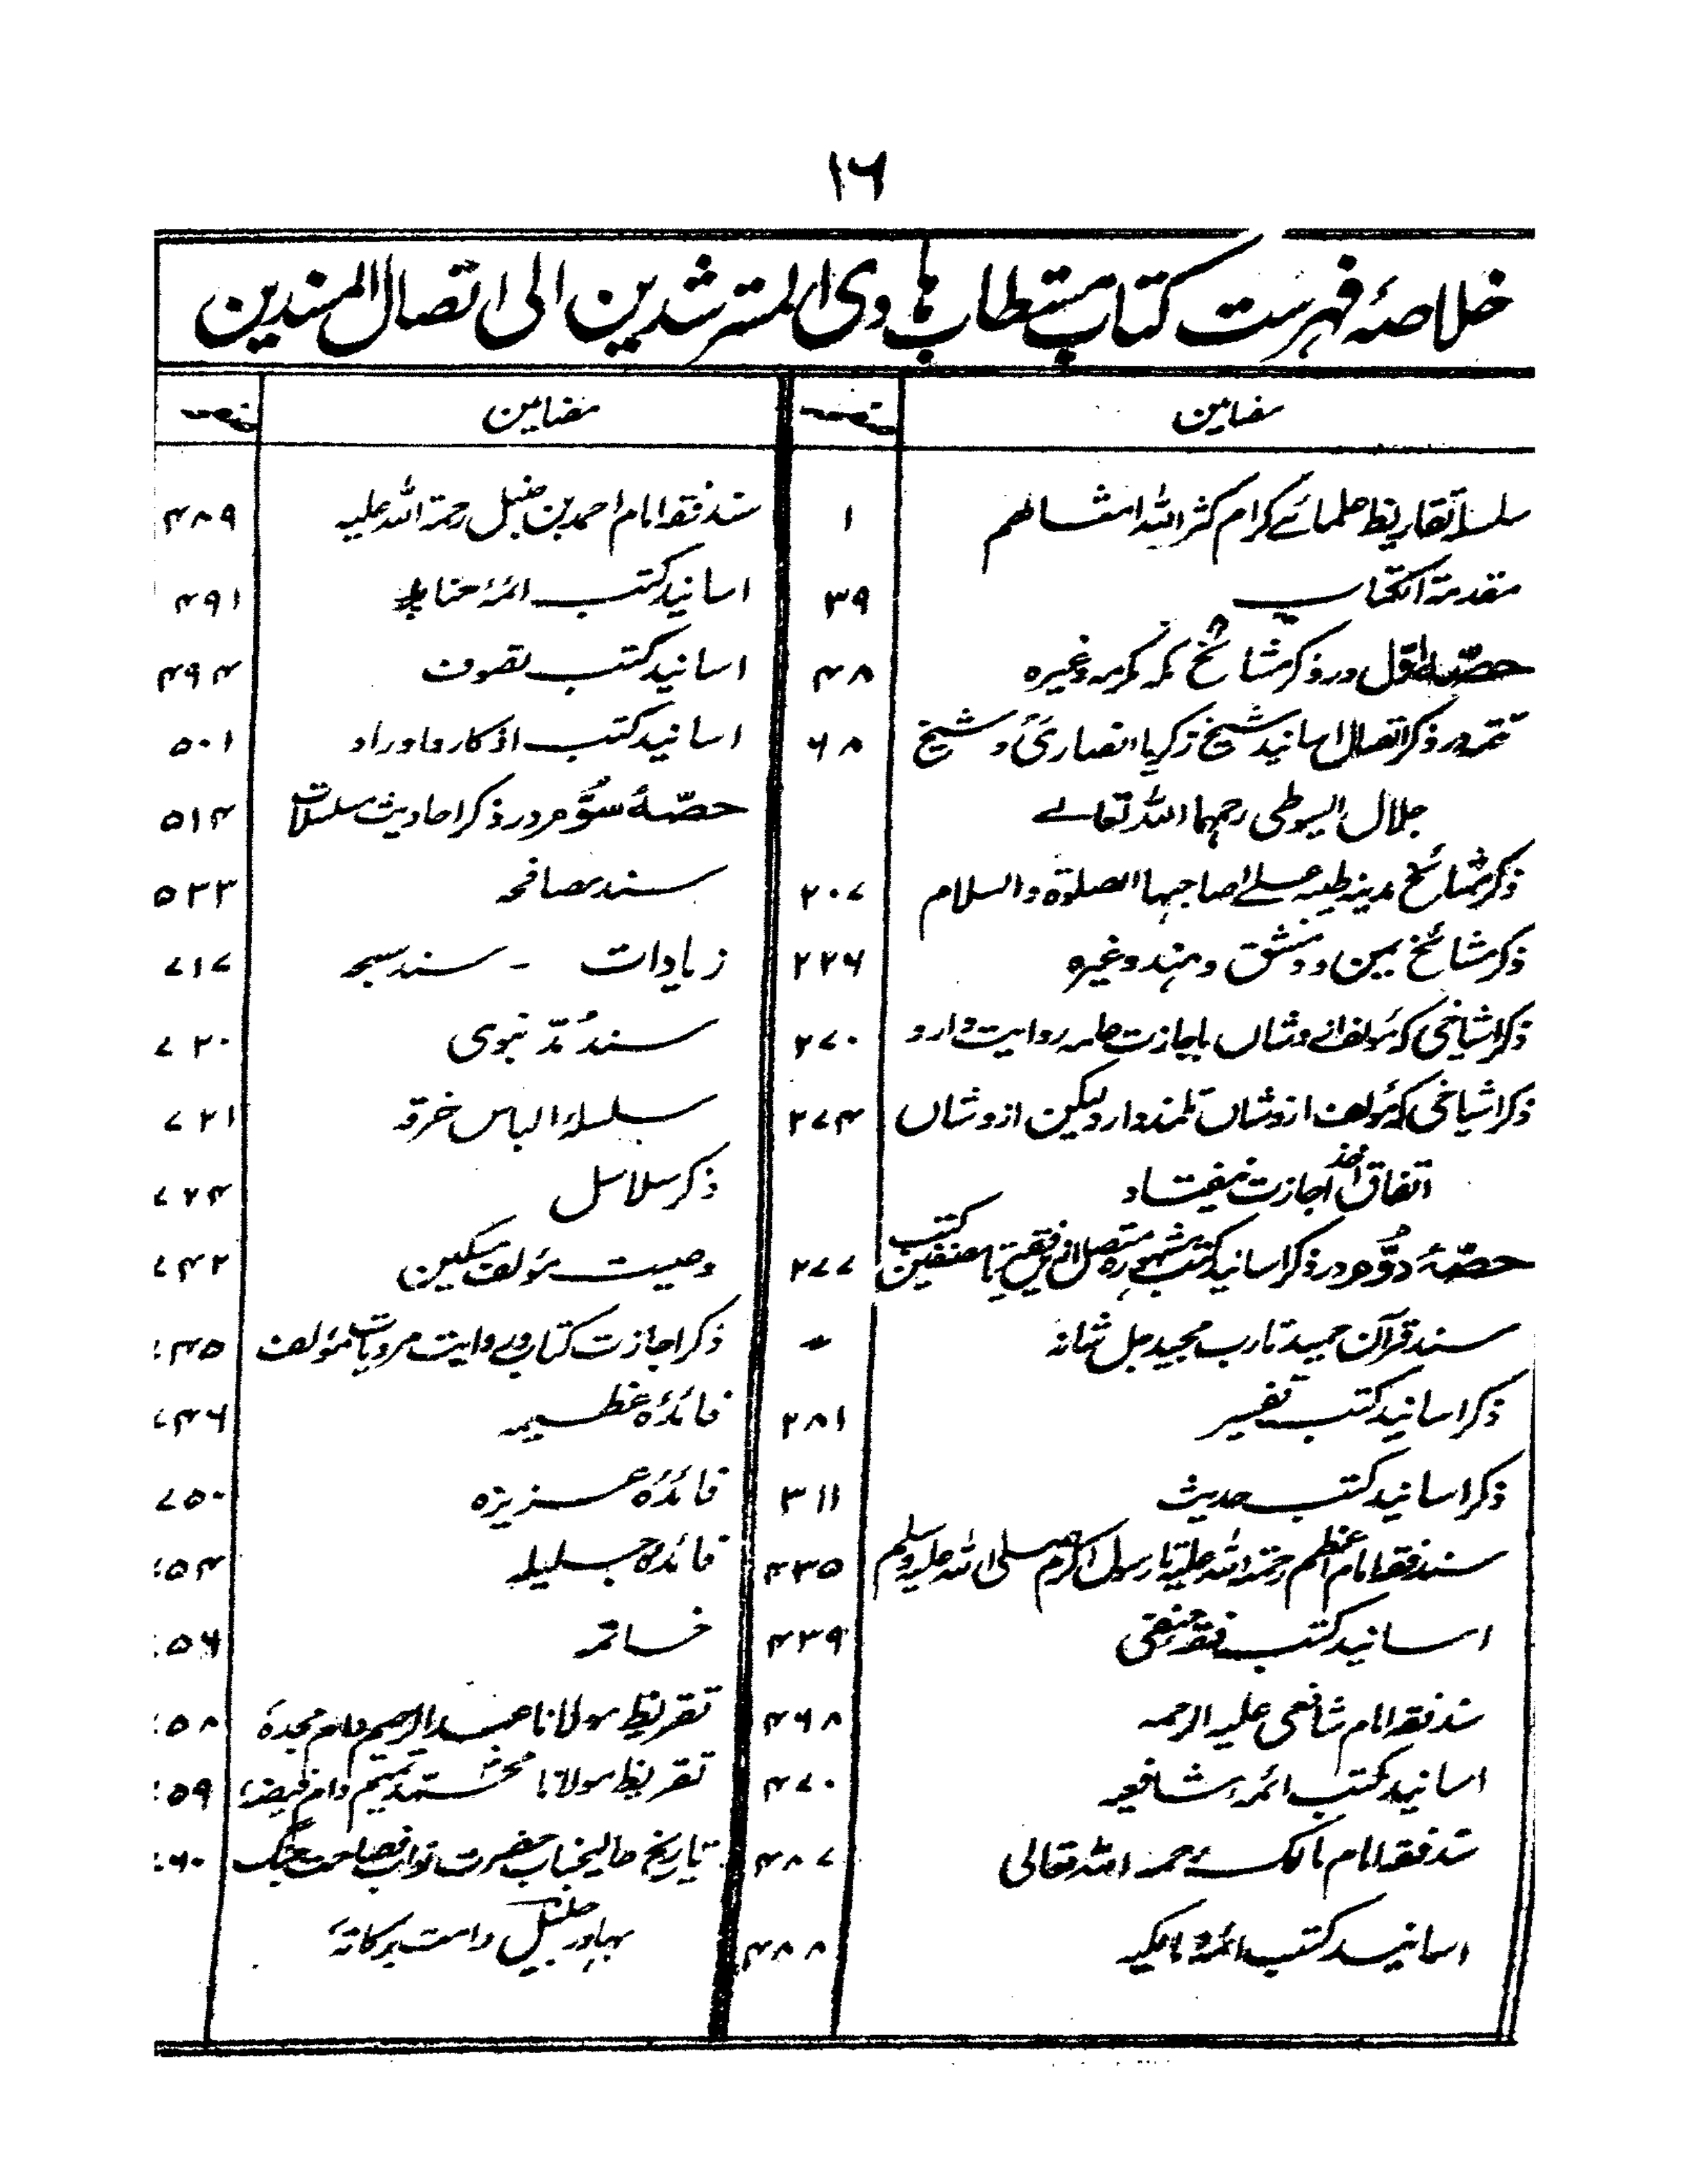 ۱۶
خلاصۂ فہرست کتاب مستطاب ہادی المسترشدین الی اتصال المسندین
مضامین صفحہ
سلسلۂ تقاریظ علمائے کرام کثر اللہ امثالہم ۱
مقدمۃ الکتاب ۳۹
حصّۂ اوّل در ذکر مشائخ مکہ مکرمہ وغیرہ ۴۸
تتمہ در ذکر اتصال اسانید شیخ زکریا انصاریؒ و شیخ ۶۸
جلال السیوطی رحمہما اللہ تعالے
ذکر مشائخ مدینہ طیبہ علےٰ صاحبہا الصلوٰۃ والسلام ۲۰۷
ذکر مشائخ یمن و دمشق و ہند وغیرہ ۲۲۶
ذکر اشیاخی کہ مؤلف از وشاں باجازت عامہ روایت دارد ۲۷۰
ذکر اشیاخی کہ مؤلف از وشاں تلمذ دارد لیکن از وشاں ۲۷۴
اتفاق اخذ اجازت نیفتاد
حصّۂ دوُّم در ذکر اسانید کتب مشہورہ متصل ازیں فقیر تا مصنفین کتب ۲۷۷
سند قرآن حمید تا رب مجید جل شانہ
ذکر اسانید کتب تفسیر ۲۸۱
ذکر اسانید کتب حدیث ۳۱۱
سند فقہ امام اعظم رحمۃ اللہ علیہ تا رسول اکرم صلی اللہ علیہ وسلم ۴۳۵
اسانید کتب فقہ حنفی ۴۳۹
سند فقہ امام شافعی علیہ الرحمہ ۴۶۸
اسانید کتب ائمہ شافعیہ ۴۷۰
سند فقہ امام مالک رحمہ اللہ تعالی ۴۸۷
اسانید کتب ائمۂ مالکیہ ۴۸۸
مضامین صفحہ
سند فقہ امام احمد بن حنبل رحمۃ اللہ علیہ ۴۸۹
اسانید کتب ائمۂ حنابلہ ۴۹۱
اسانید کتب تصوف ۴۹۴
اسانید کتب اذکار و اوراد ۵۰۱
حصّۂ سوُّم در ذکر احادیث مسلسلات ۵۱۴
سند مصافحہ ۵۳۳
زیادات - سند سبحہ ۷۱۷
سند مُدّ نبوی ۷۲۰
سلسلۂ الباس خرقہ ۷۲۱
ذکر سلاسل ۷۲۴
وصیت مؤلف مسکین ۷۴۲
ذکر اجازت کتاب و روایت مرویات مؤلف ۷۴۵
فائدۂ عظیمہ ۷۴۶
فائدۂ عزیزہ ۷۵۰
فائدۂ جلیلہ ۷۵۴
خاتمہ ۷۵۶
تقریظ مولانا عبد الرحیم دام مجدہٗ ۷۵۸
تقریظ مولانا محمد تمیم دام فیضہٗ ۷۵۹
تاریخ عالیجناب حضرت نواب فصاحت جنگ ۷۶۰
بہادر جلیل دامت برکاتہٗ